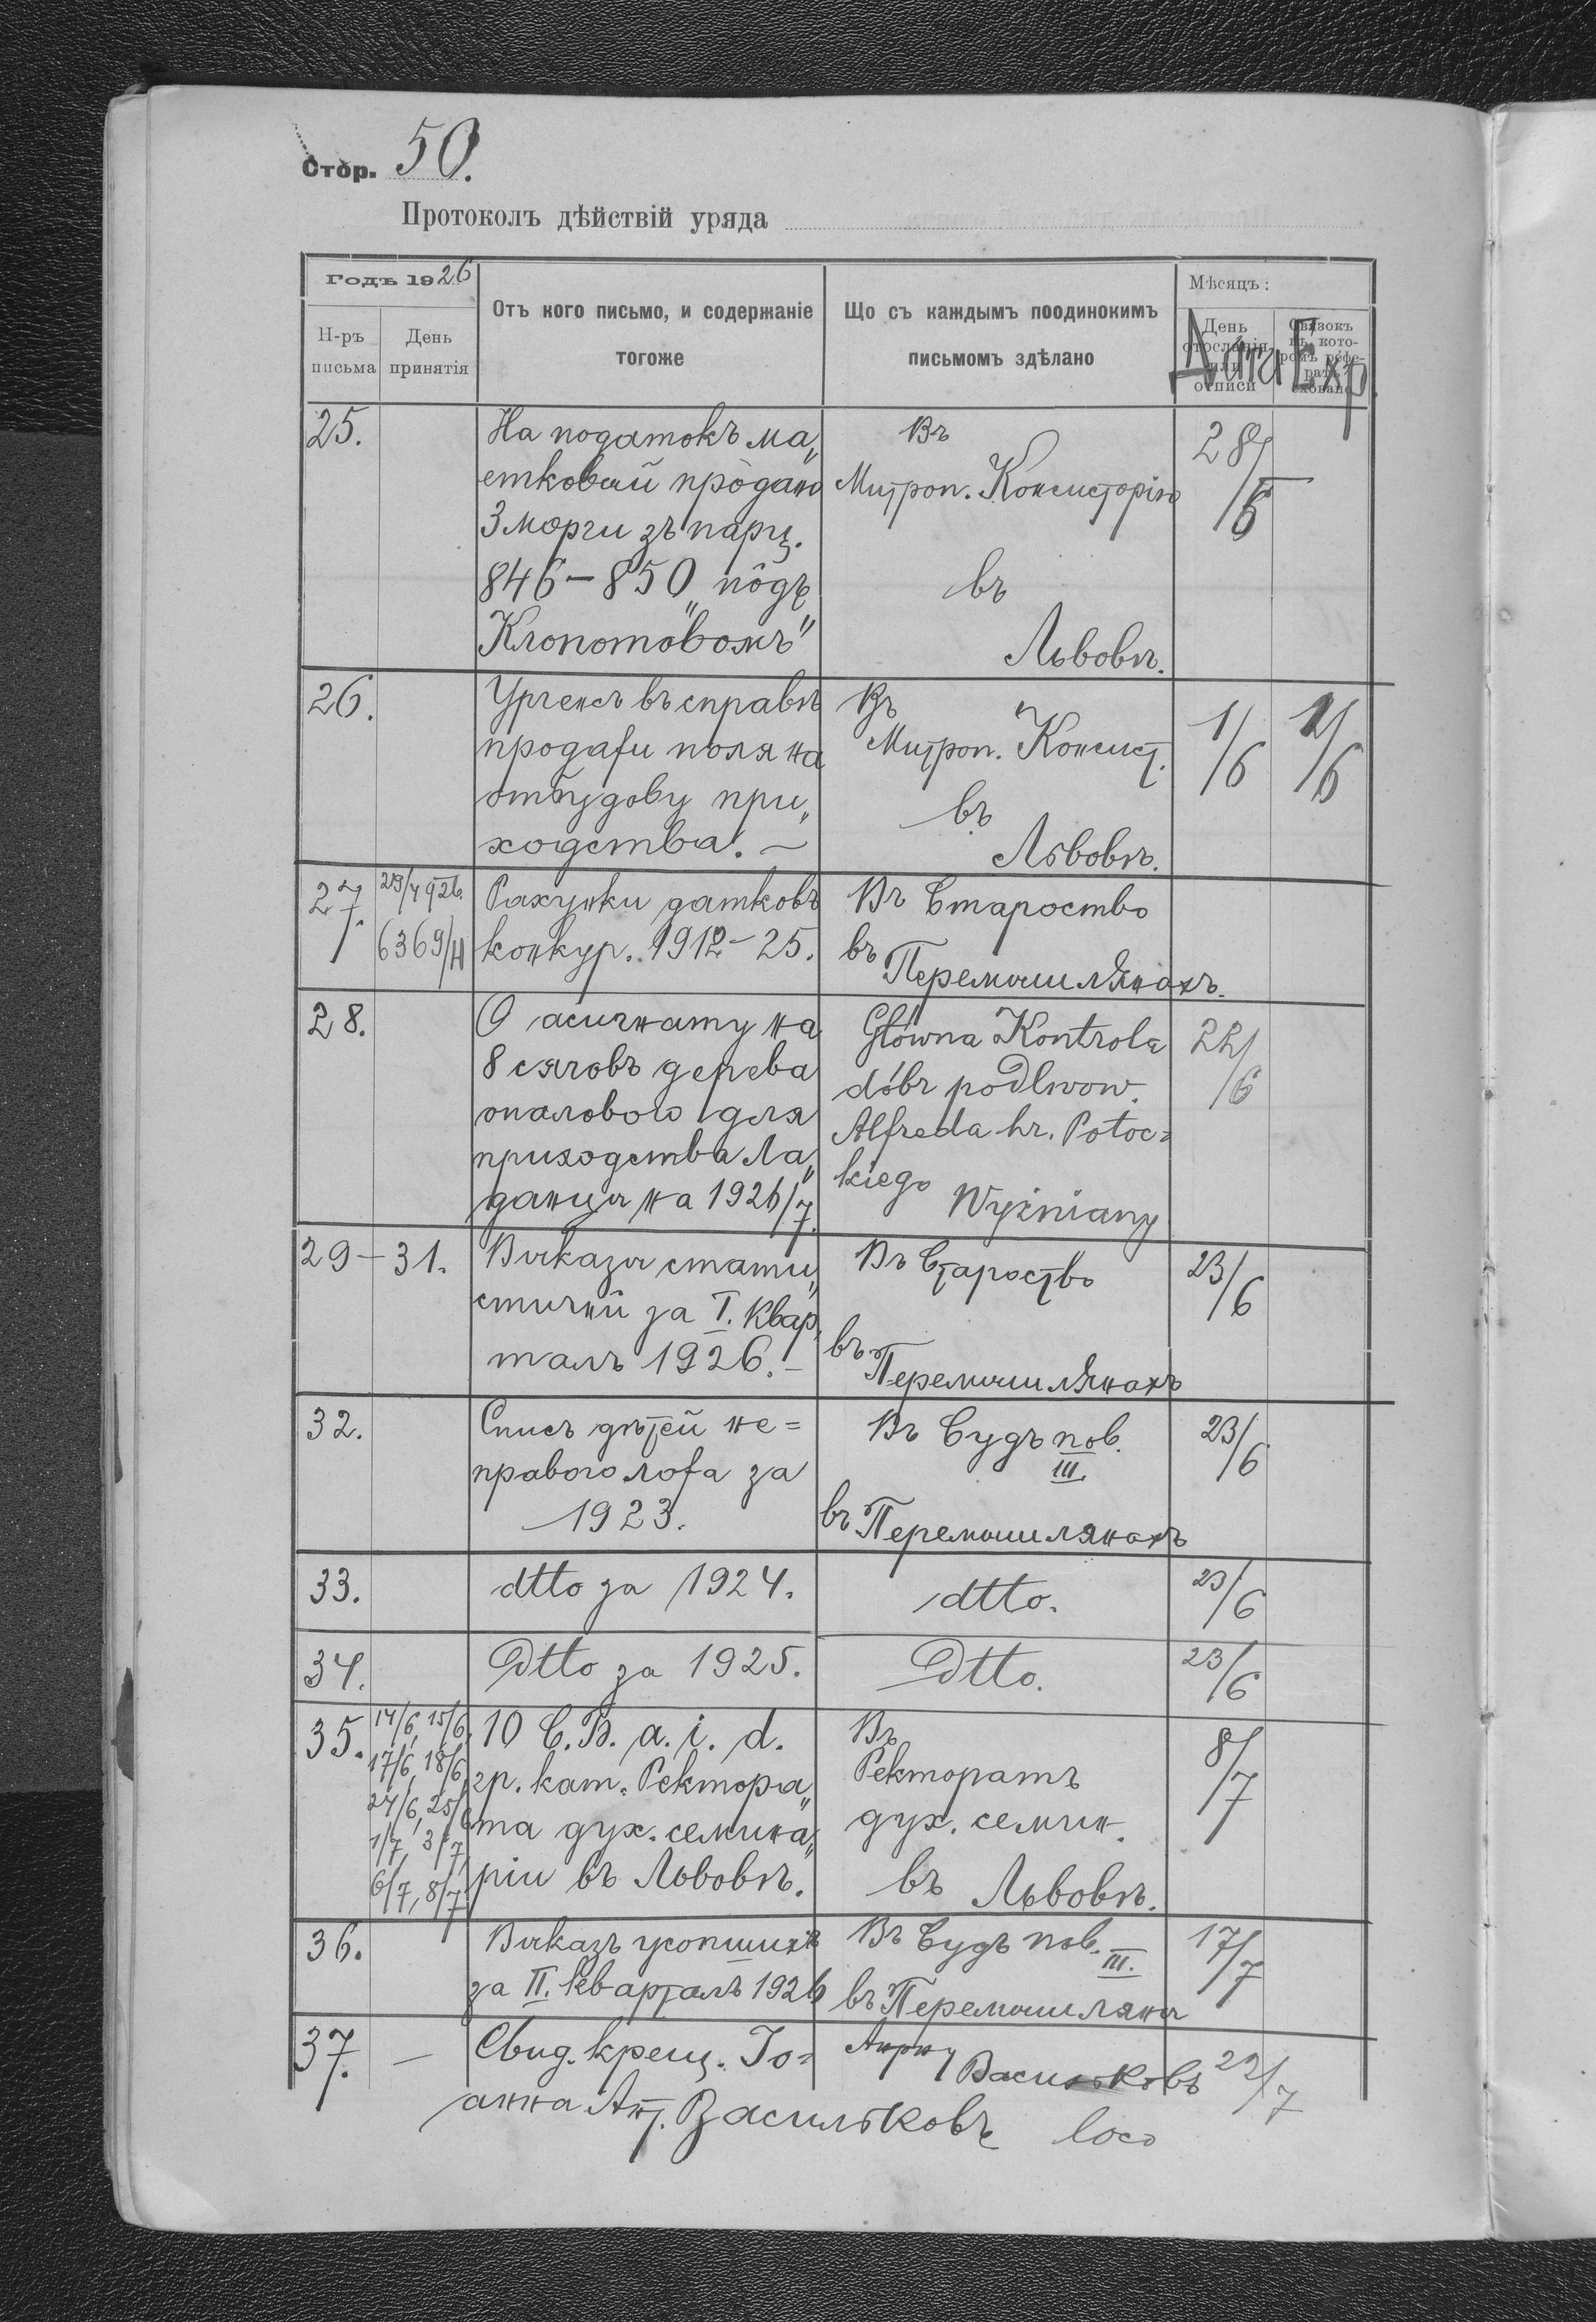 Стор. 50.
Протоколъ дѣйствій уряда
Годъ 1926
Н-ръ письма
День принятія
Отъ кого письмо, и содержаніе
тогоже
Що съ каждымъ поодинокимъ
письмомъ здѣлано
Мѣсяцъ:
День отосланія или описи
Дата Exp.
25.
На податокъ ма„
етковый продано
3 морги зъ парц.
846–850 „пôдъ
Клопотовомъ"
Въ
Митроп. Консисторію
въ
Львовѣ.
28/5
26.
Ургенсъ въ справѣ
продажи поля на
отбудову при„
ходства. –
Въ
Митроп. Консист.
въ
Львовѣ.
1/6
27.
6369/H
Рахунки датковъ
конкур. 1912–25.
Въ Староство
въ
Перемышлянахъ.
28.
О асигнату на
8 сяговъ дерева
опалового для
приходства Ла„
данця на 1926/7.
Główna Kontrola
dóbr podlwow.
Alfreda hr. Potoc=
kiego
Wyżniany
22/6
29–31.
Выказы стати„
стичнû за I. квар„
талъ 1926. –
Въ Староство
въ
Перемышлянахъ
23/6
32.
Списъ дѣтей не=
правого ложа за
1923.
Въ Судъ пов.
III.
въ Перемышлянахъ
23/6
33.
dtto за 1924.
dtto.
23/6
34.
Dtto за 1925.
Dtto.
23/6
35.
14/6, 15/6,
17/6, 18/6,
24/6, 25/6
1/7, 3/7,
6/7, 8/7
10 С.В. a. i. d.
гр. кат. Ректора„
та дух. семина„
ріи въ Львовѣ.
Въ
Ректоратъ
дух. семин.
въ Львовѣ.
8/7
36.
Выказъ усопшихъ
за II. кварталъ 1926
Въ Судъ пов. III.
въ Перемышляны
17/7
37. –
Свид. крещ. Іо=
анна Ант. Васильковъ
Васильковъ
loco
22/7